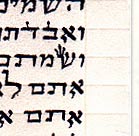 השמים
ואבדתם
ושמתם
אתם לא
אתם א